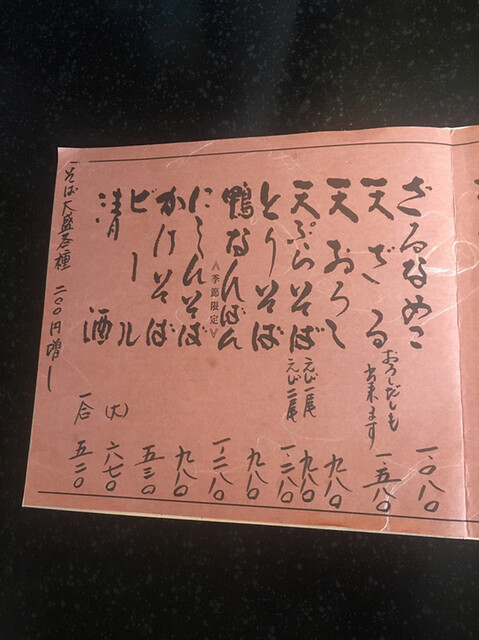 ざるなめこ 一、〇八〇
天ざる おろしだしも出来ます 一、五八〇
天おろし 九八〇
天ぷらそば えび一尾 九八〇
えび二尾 一、二八〇
とりそば 九八〇
鴨なんばん 《季節限定》 一、二八〇
にしんそば 九八〇
かけそば 五三〇
ビール (大) 六七〇
清酒 一合 五二〇
そば大盛各種 二〇〇円増し